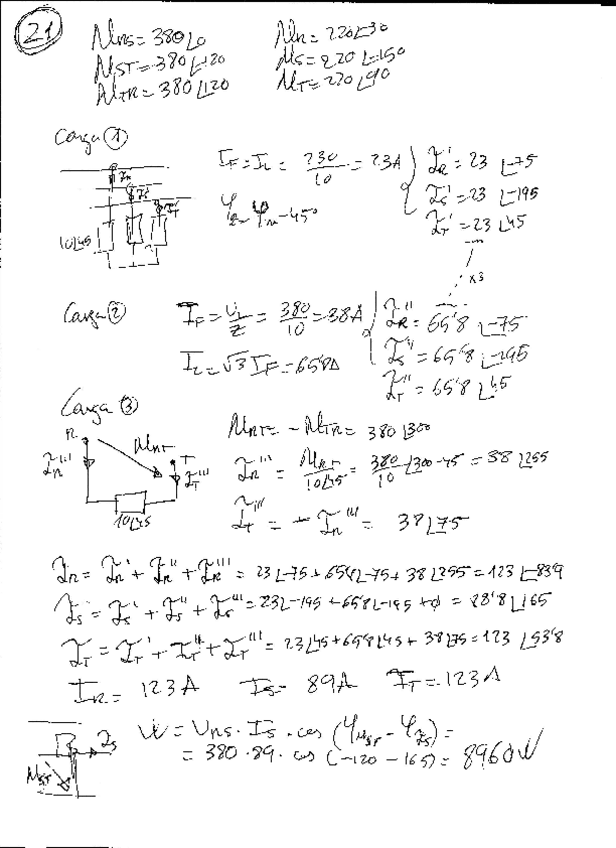 21
U_RS = 380∠0
U_ST = 380∠-120
U_TR = 380∠120
U_R = 220∠-30
U_S = 220∠-150
U_T = 220∠90
Carga ①
10∠45
I_F = I_L = 230/10 = 23A
I_R' = 23 ∠-75
I_S' = 23 ∠-195
I_T' = 23 ∠45
x3
Carga ②
I_F = U_L/Z = 380/10 = 38A
I_L = √3 I_F = 65'8A
I_R'' = 65'8 ∠-75
I_S'' = 65'8 ∠-195
I_T'' = 65'8 ∠45
Carga ③
R
U_RT
T
I_R'''
I_T'''
10∠45
U_RT = -U_TR = 380∠300
I_R''' = U_RT/10∠45 = 380/10 ∠300-45 = 38∠255
I_T''' = -I_R''' = 38∠75
I_R = I_R' + I_R'' + I_R''' = 23∠-75 + 65'8∠-75 + 38∠255 = 123∠-83'9
I_S = I_S' + I_S'' + I_S''' = 23∠-195 + 65'8∠-195 + 0 = 88'8∠165
I_T = I_T' + I_T'' + I_T''' = 23∠45 + 65'8∠45 + 38∠75 = 123∠53'8
I_R = 123A I_S = 89A I_T = 123A
I_S
U_ST
W = U_RS · I_S · cos (φ_U_ST - φ_I_S) =
= 380 · 89 · cos (-120 - 165) = 8960W